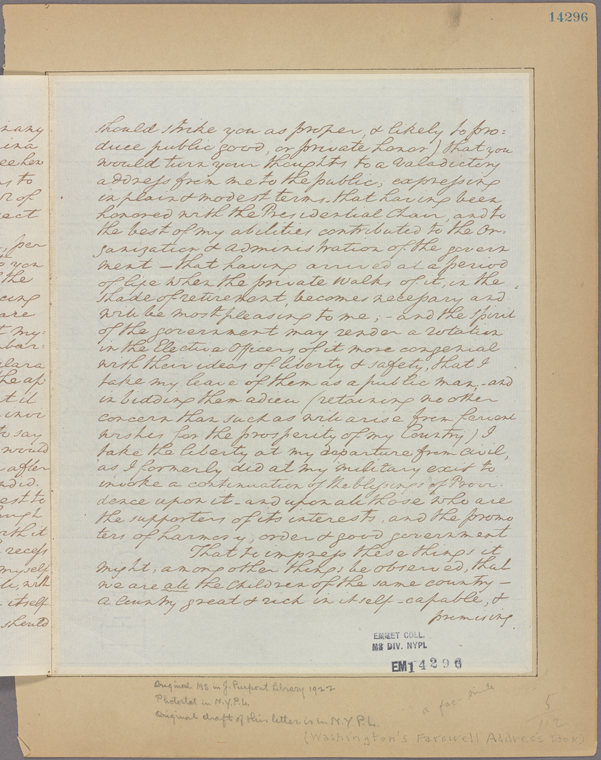 14296
should strike you as proper, & likely to pro=
duce public good, or private honor) that you
would turn your thoughts to a Valadictory
address from me to the public; expressing
in plain & modest terms - that having been
honored with the Presidential Chair, and to
the best of my abilities contributed to the Or-
ganization & Administration of the govern
ment – that having arrived at a period
of life when the private walks of it, in the
shade of retirement, becomes necessary and
will be most pleasing to me; – and the spirit
of the government may render a rotation
in the Elective Officers of it more congenial
with their ideas of liberty & safety, that I
take my leave of them as a public man, – and
in bidding them adieu (retaining no other
concern than such as will arise from fervent
wishes for the prosperity of my Country) I
take the liberty at my departure from civil,
as I formerly did at my military exit to
invoke a continuation of the blessings of Provi-
dence upon it – and upon all those who are
the supporters of its interests, and the promo
ters of harmony, order & good government
That to impress these things it
might, among other things be observed, that
we are all the Children of the same country –
a Country great & rich in itself – capable, &
promising
many
ina
to
or of
per
you
the
cing
are
my
bar
clara
the ap
it
invi
to say
would
after
did.
est to
recess
myself
will
itself
should
EMMET COLL.
MS DIV. NYPL
EM14296
Original MS in J. Pierpont Library 1922
Photostat in N.Y.P.L.
Original draft of this letter is in N.Y.P.L.
(Washington's Farewell Address